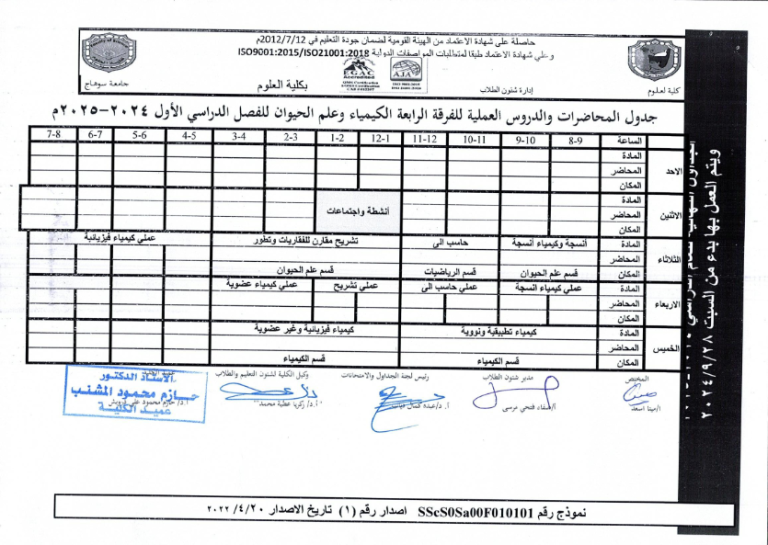 حاصلة على شهادة الاعتماد من الهيئة القومية لضمان جودة التعليم في 2012/7/12م
وعلى شهادة الاعتماد طبقا لمتطلبات المواصفات الدولية ISO9001:2015/ISO21001:2018
EGAC
AJA
جامعة سوهاج
بكلية العلوم
إدارة شئون الطلاب
كلية العلوم
جدول المحاضرات والدروس العملية للفرقة الرابعة الكيمياء وعلم الحيوان للفصل الدراسي الأول ٢٠٢٤-٢٠٢٥م
الساعة 8-9 9-10 10-11 11-12 12-1 1-2 2-3 3-4 4-5 5-6 6-7 7-8
الاحد
المادة
المحاضر
المكان
الاثنين
المادة
المحاضر أنشطة واجتماعات
المكان
الثلاثاء
المادة أنسجة وكيمياء أنسجة حاسب الى تشريح مقارن للفقاريات وتطور عملي كيمياء فيزيائية
المحاضر
المكان قسم علم الحيوان قسم الرياضيات قسم علم الحيوان
الاربعاء
المادة عملي كيمياء انسجة عملي حاسب الى عملي تشريح عملي كيمياء عضوية
المحاضر
المكان
الخميس
المادة كيمياء تطبيقية ونووية كيمياء فيزيائية وغير عضوية
المحاضر
المكان قسم الكيمياء قسم الكيمياء
ويتم العمل بها بدء من السبت ٢٠٢٤/٩/٢٨
المختص مدير شئون الطلاب رئيس لجنة الجداول والامتحانات وكيل الكلية لشئون التعليم والطلاب
أ/صفاء فتحي مرسى
أ.د/ زكريا عطية محمد
الأستاذ الدكتور
حازم محمود المشنب
عميد الكلية
نموذج رقم SScS0Sa00F010101 اصدار رقم (١) تاريخ الاصدار ٢٠٢٢/٤/٢٠